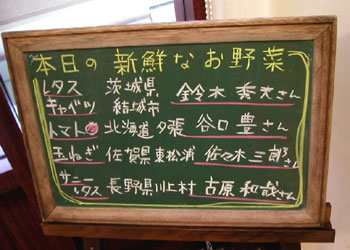 本日の新鮮なお野菜
レタス 茨城県
キャベツ 結城市 鈴木秀夫さん
トマト 北海道夕張 谷口豊さん
玉ねぎ 佐賀県東松浦 佐々木三郎さん
サニーレタス 長野県川上村 古原和哉さん